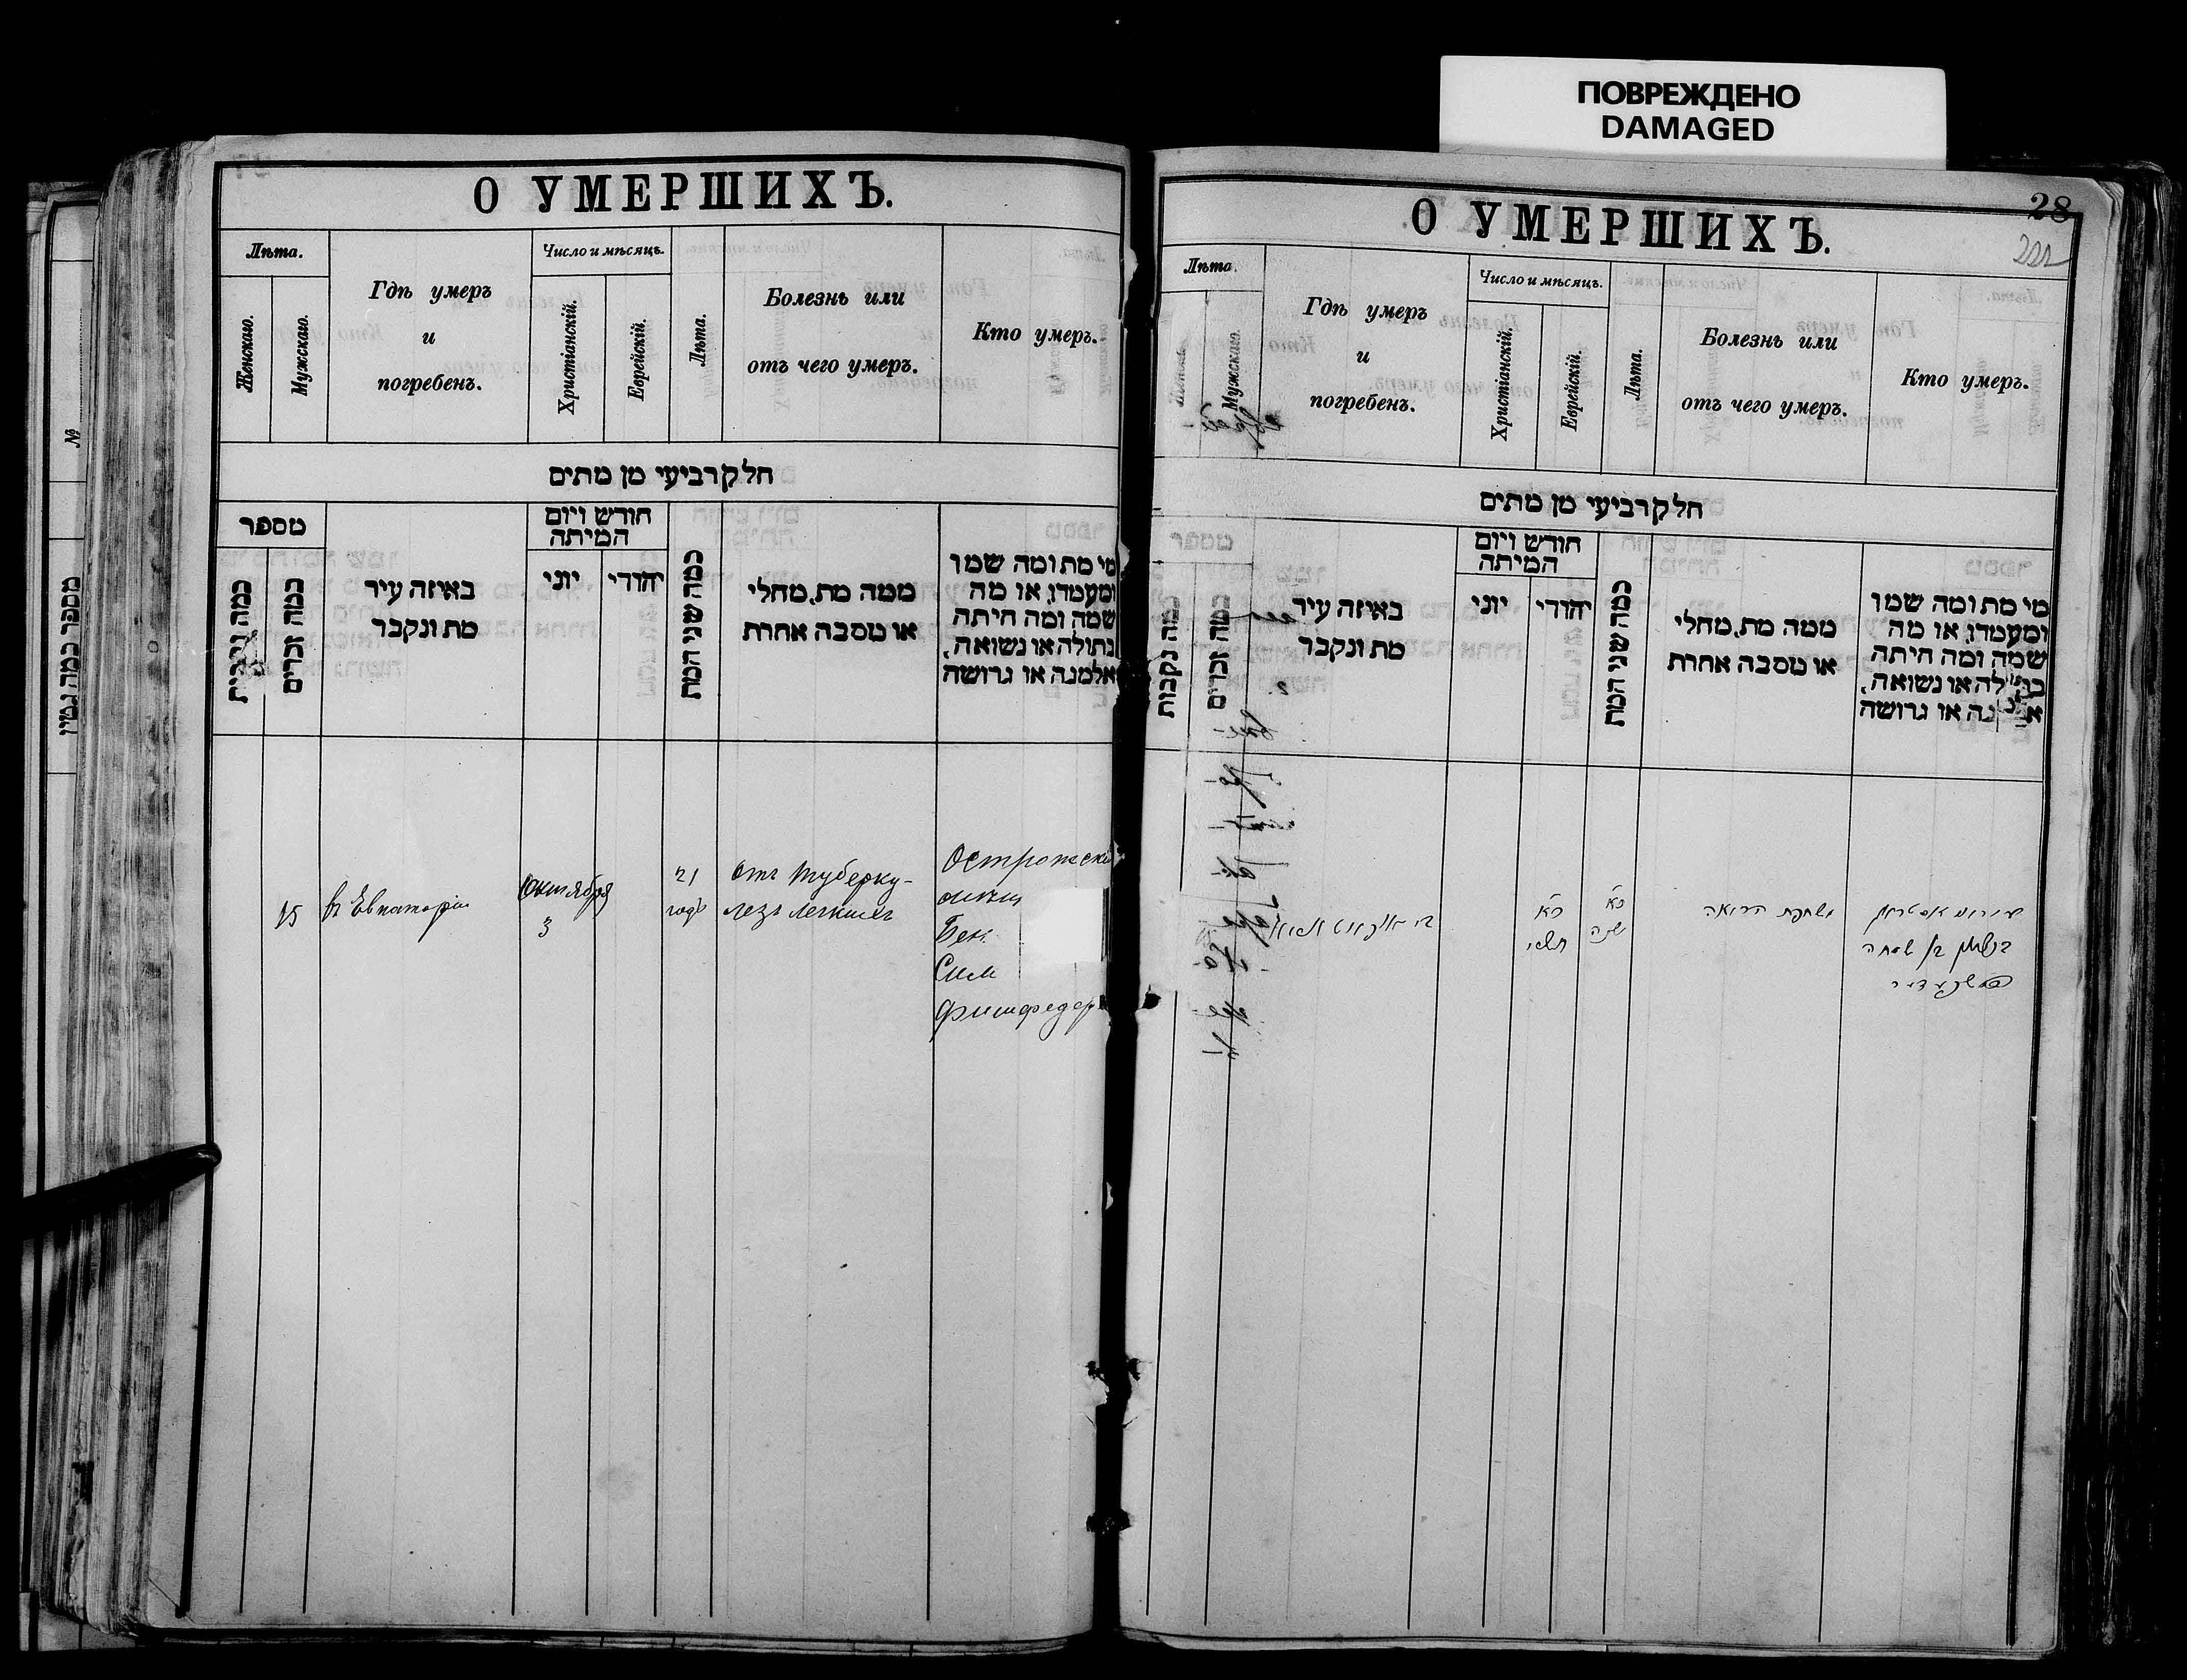 ПОВРЕЖДЕНО
DAMAGED
О УМЕРШИХЪ.
Лѣта.
Женскаго.
Мужскаго.
Гдѣ умеръ
и
погребенъ.
Число и мѣсяцъ.
Христіанскій.
Еврейскій.
Лѣта.
Болезнь или
отъ чего умеръ.
Кто умеръ.
חלק רביעי מן מתים
מספר
כמה זכרים
באיזה עיר
מת ונקבר
חודש ויום
המיתה
יוני
יהודי
כמה שני המת
ממה מת, מחלי
או מסבה אחרת
מי מת ומה שמו
ומעמדו, או מה
שמה ומה היתה
בתולה או נשואה,
אלמנה או גרושה
15
въ Евпаторіи
Октября
3
21
годъ
Отъ туберку-
леза легкихъ
Острожскі
Бен
Сим
№
מספר כמה גטין
28
О УМЕРШИХЪ.
Лѣта.
Мужскаго.
Гдѣ умеръ
и
погребенъ.
Число и мѣсяцъ.
Христіанскій.
Еврейскій.
Лѣта.
Болезнь или
отъ чего умеръ.
Кто умеръ.
חלק רביעי מן מתים
מספר
כמה נקבות
כמה זכרים
באיזה עיר
מת ונקבר
חודש ויום
המיתה
יוני
יהודי
כמה שני המת
ממה מת, מחלי
או מסבה אחרת
מי מת ומה שמו
ומעמדו, או מה
שמה ומה היתה
או נשואה,
או גרושה
כא
תשרי
כא
שנה
משחפת הריאה
בן שמחה